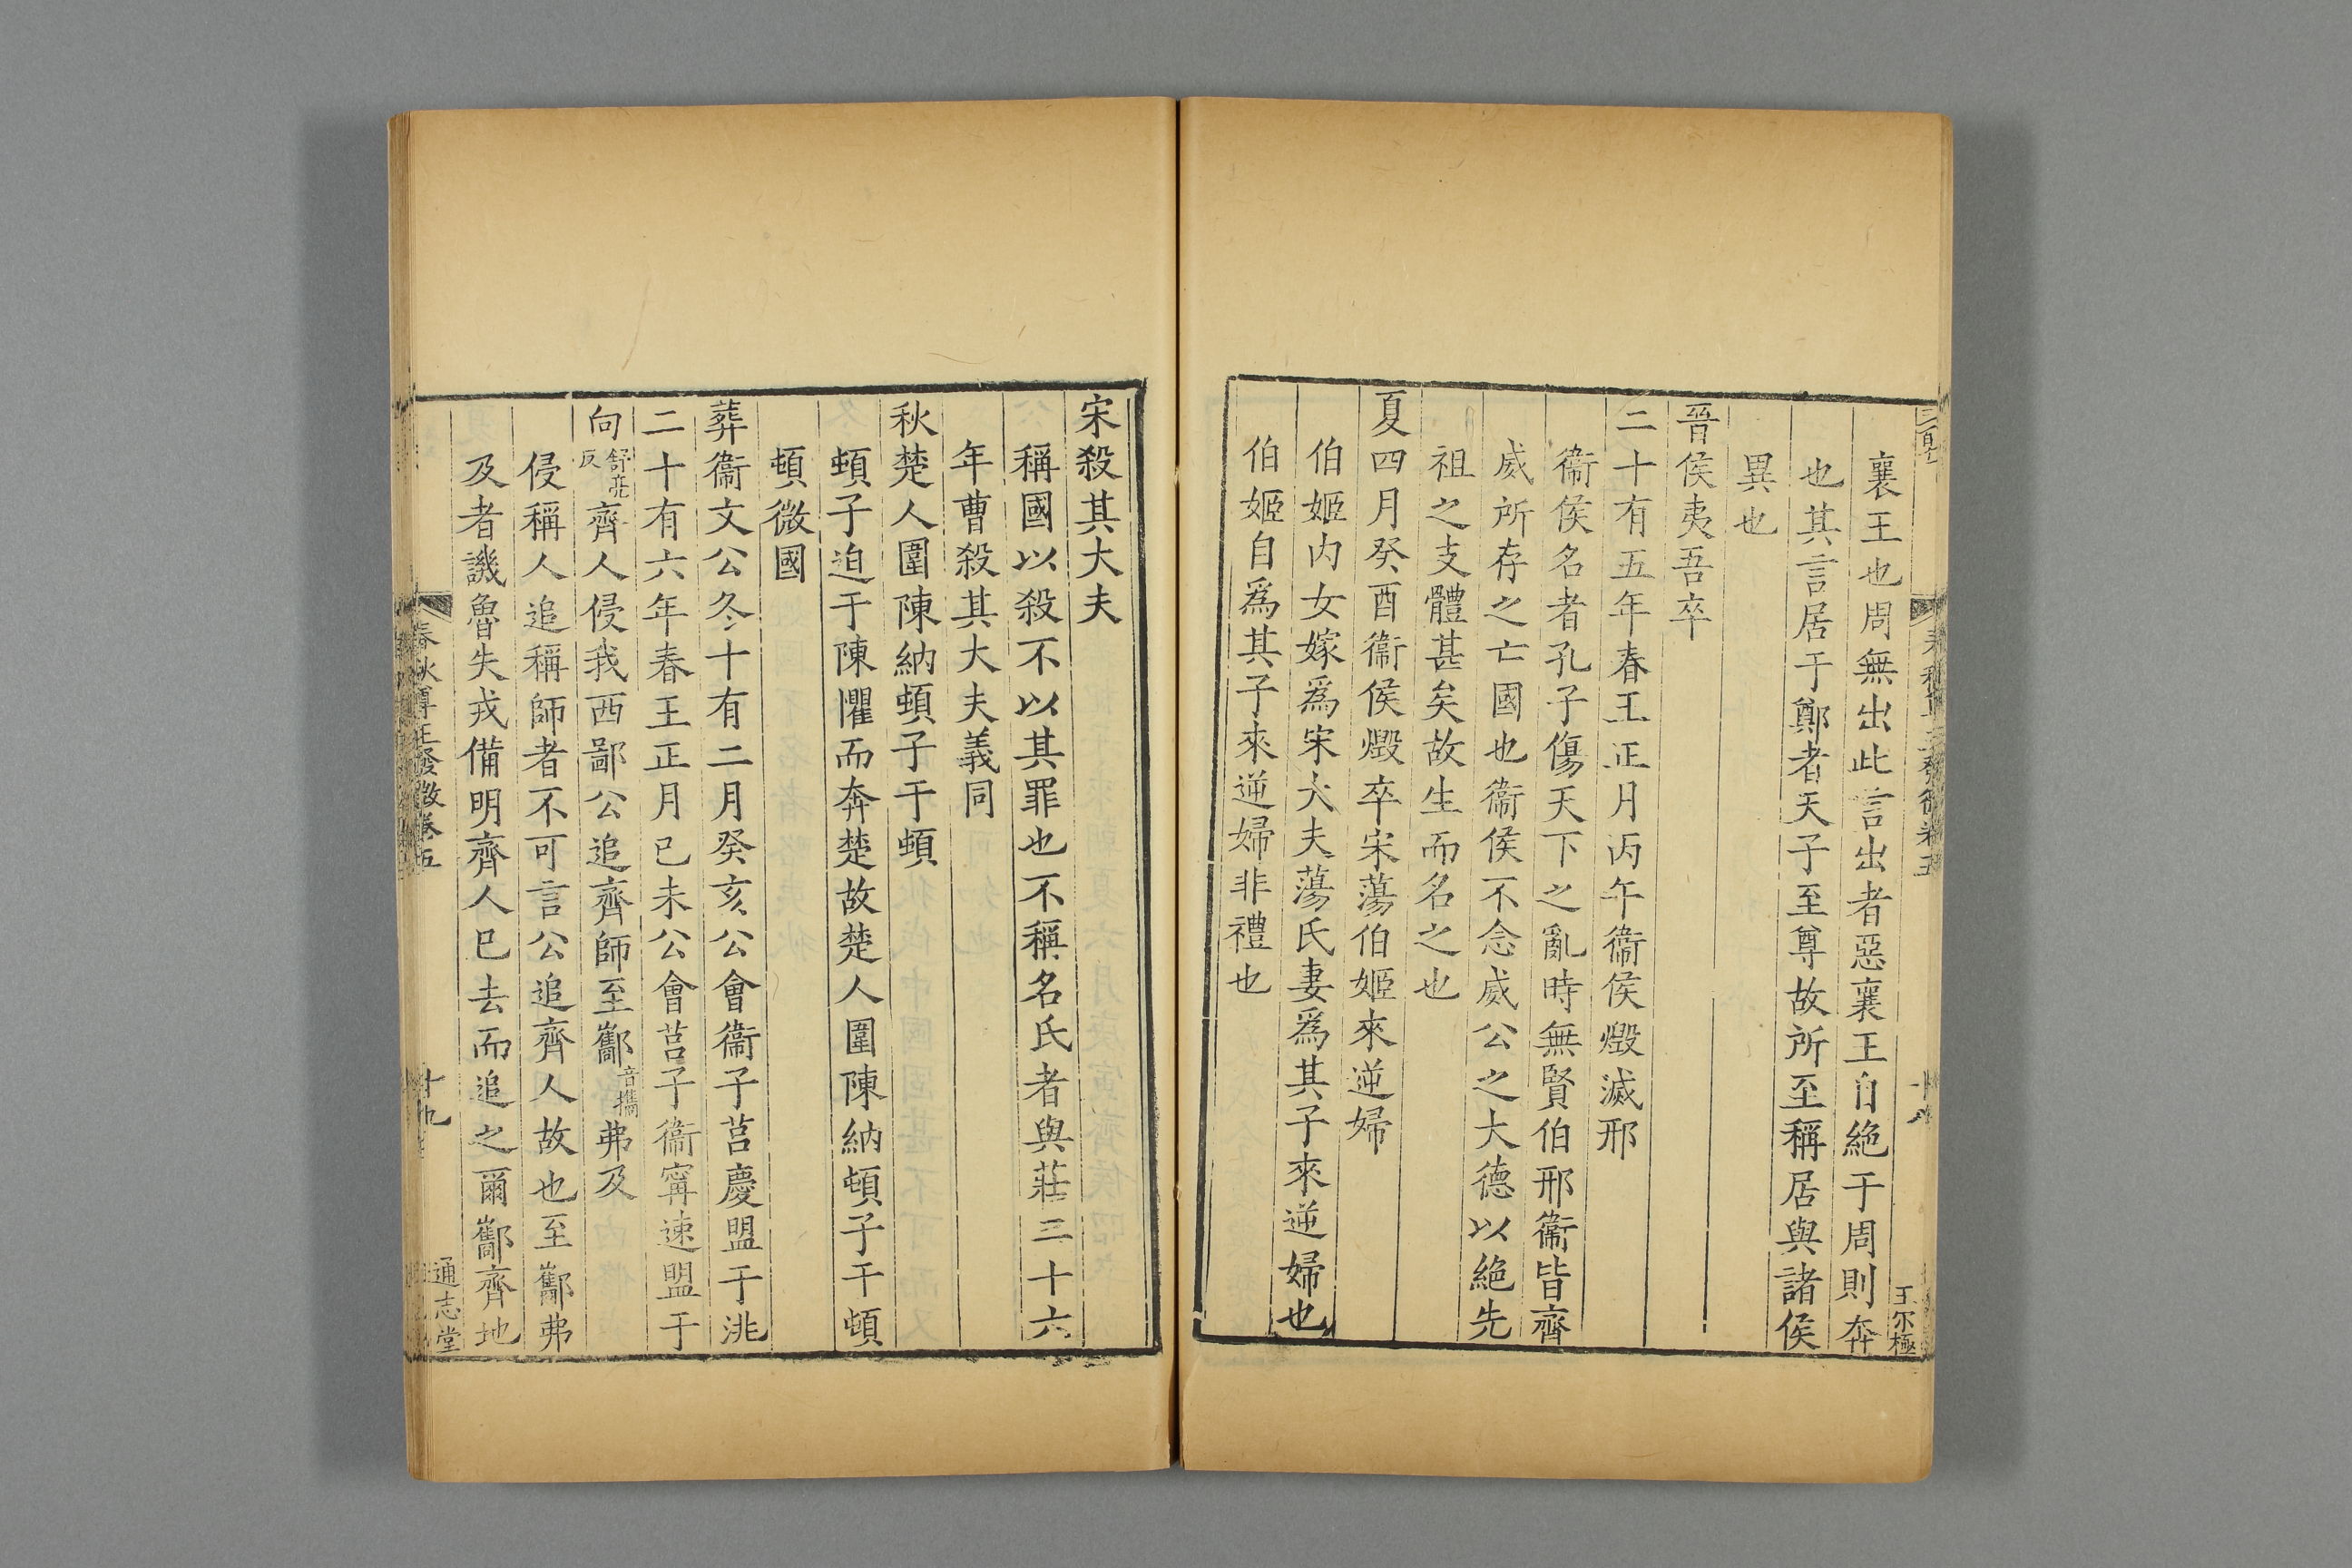 襄王也周無出此言出者惡襄王自絶于周則奔
也其言居于鄭者天子至尊故所至稱居與諸侯
異也
晉侯夷吾卒
二十有五年春王正月丙午衞侯燬滅邢
衞侯名者孔子傷天下之亂時無賢伯邢衞皆齊
威所存之亡國也衞侯不念威公之大德以絶先
祖之支體甚矣故生而名之也
夏四月癸酉衞侯燬卒宋蕩伯姬來逆婦
伯姬内女嫁爲宋大夫蕩氏妻爲其子來逆婦也
伯姬自爲其子來逆婦非禮也
王尔極
宋殺其大夫
稱國以殺不以其罪也不稱名氏者與莊二十六
年曹殺其大夫義同
秋楚人圍陳納頓子于頓
頓子迫于陳懼而奔楚故楚人圍陳納頓子于頓
頓微國
葬衞文公冬十有二月癸亥公會衞子莒慶盟于洮
二十有六年春王正月已未公會莒子衞甯速盟于
向舒亮反齊人侵我西鄙公追齊師至酅音攜弗及
侵稱人追稱師者不可言公追齊人故也至酅弗
及者譏魯失戎備明齊人已去而追之爾酅齊地
春秋尊王發微卷五
十九
通志堂